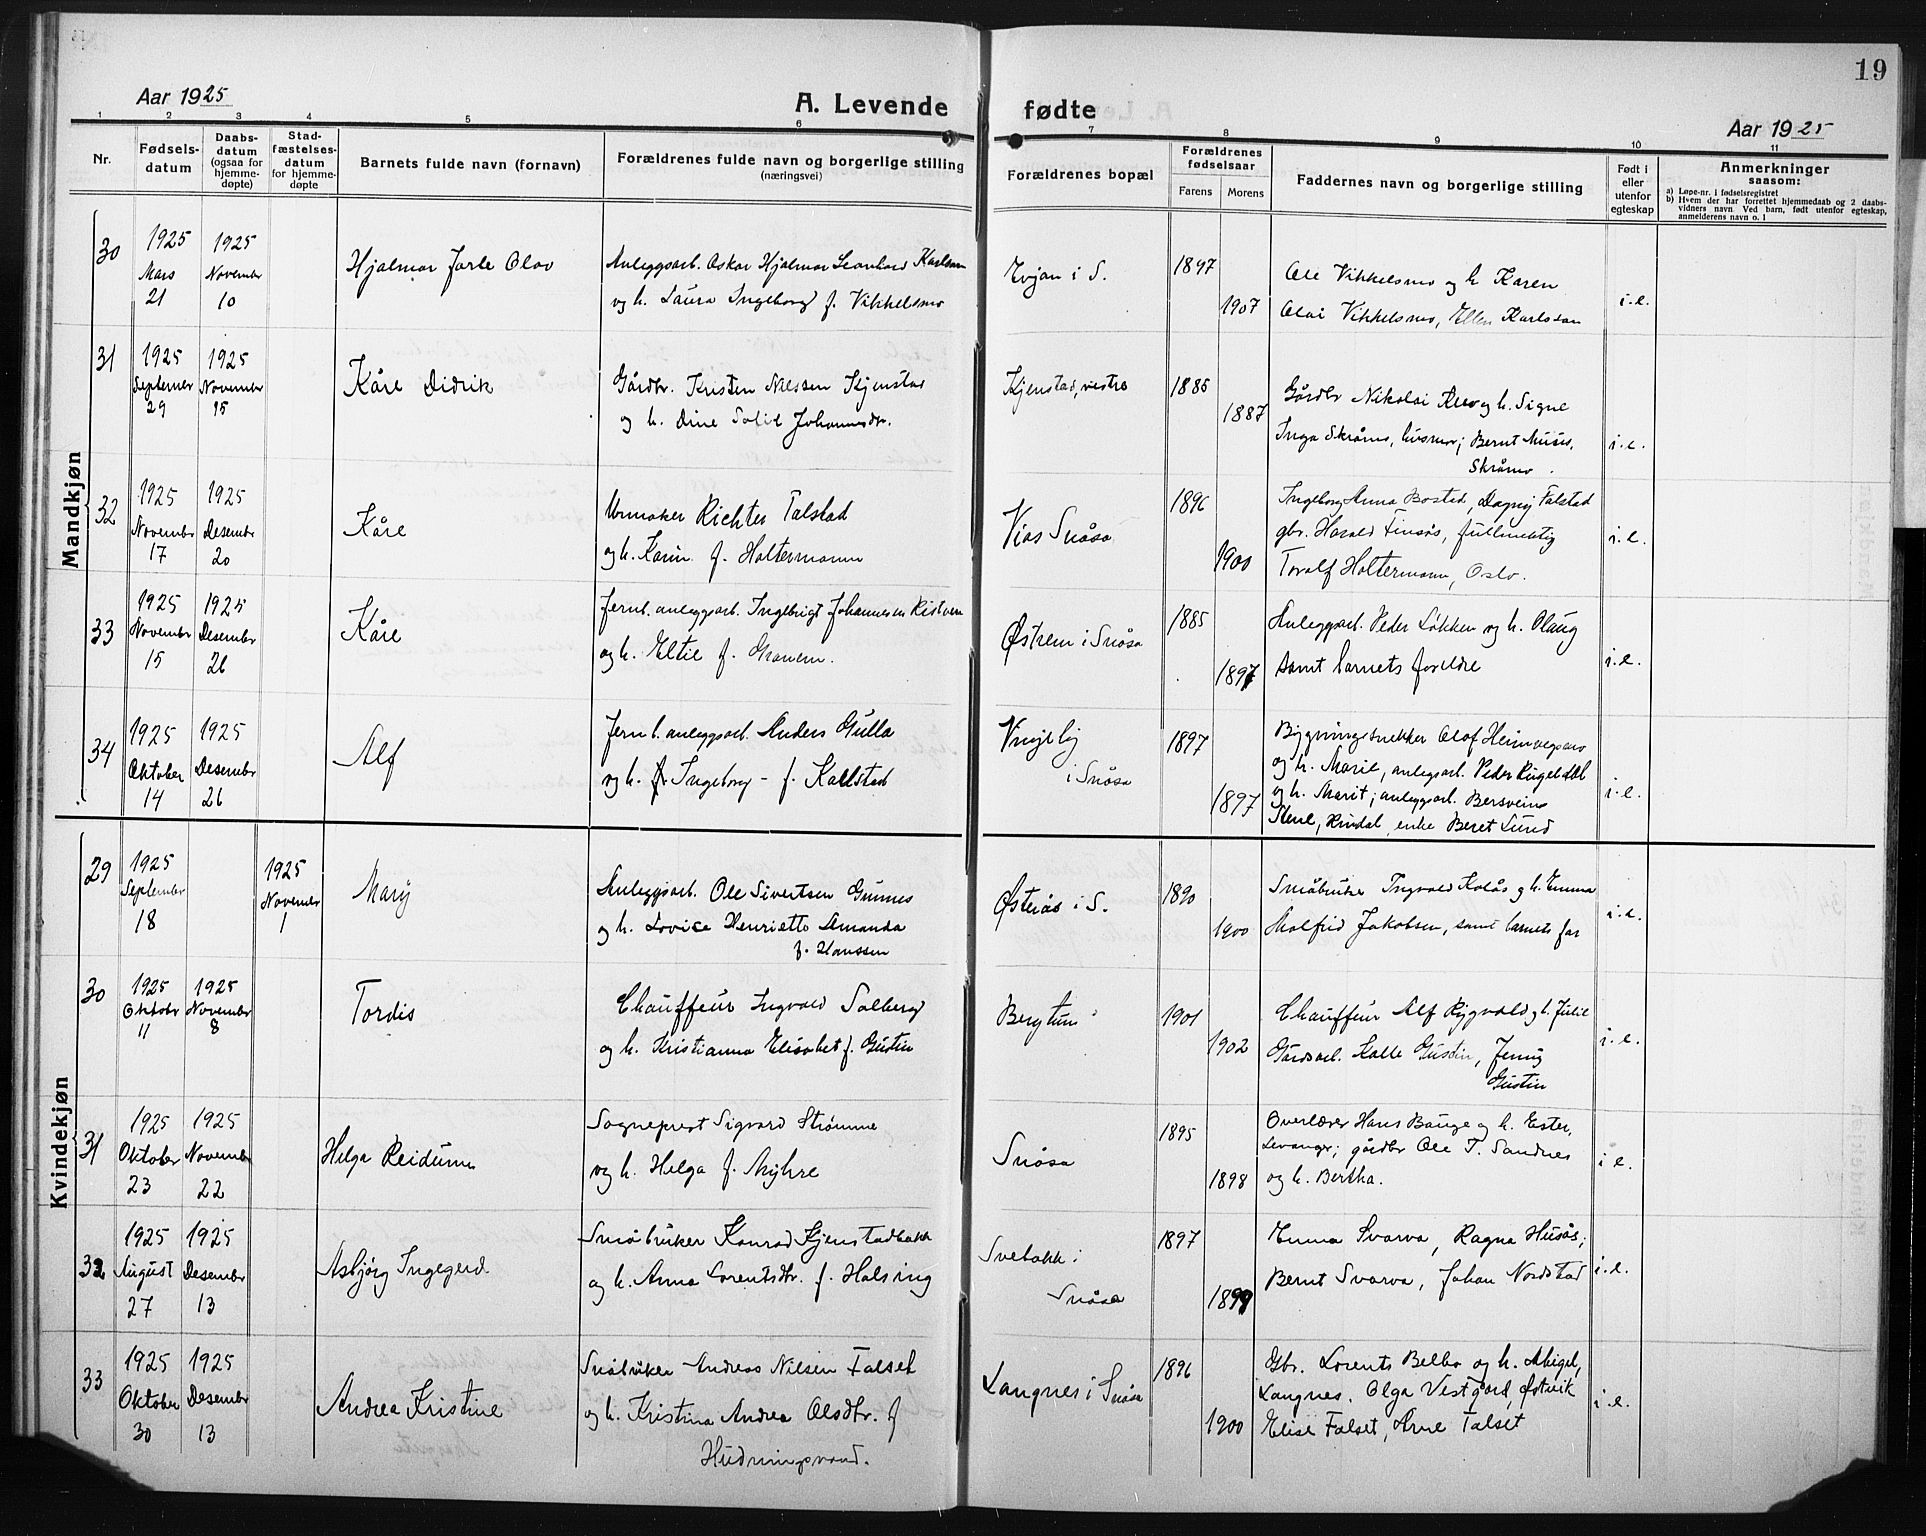 19
Aar 1925
A. Levende fødte
Aar 1925
1 2 3 4 5 6 7 8 9 10 11
Nr.
Fødselsdatum
Daabsdatum (ogsaa for hjemmedøpte)
Stadfæstelsesdatum for hjemmedøpte
Barnets fulde navn (fornavn)
Forældrenes fulde navn og borgerlige stilling (næringsvei)
Forældrenes bopæl
Forældrenes fødselsaar
Farens Morens
Faddernes navn og borgerlige stilling
Født i eller utenfor egteskap
Anmerkninger saasom:
a) Løpe-nr. i fødselsregistret
b) Hvem der har forrettet hjemmedaab og 2 daabsvidners navn Ved barn, født utenfor egteskap, anmelderens navn o. l
Mandkjøn
30
1925 Mars 21
1925 November 10
Hjalmar Jarle Olov
Anleggsarb. Oskar Hjalmar Leonhard Karlsson
og h. Laura Ingeborg f. Vikkelsmo
i S.
1897
1907
Ole Vikkelsmo og h. Karen
Olai Vikkelsmo, Ellen Karlsson
i.e.
31
1925 September 29
1925 November 15
Kåre Didrik
Gårdbr. Kristen Nilssen Kjenstad
og h. Dine Johannesdtr.
Kjenstad, vestre
1885
1887
Gårdbr Nikolai og h. Signe
Inga Skråmo, husmor; Bernt
Skråmo
i.e.
32
1925 November 17
1925 Desembr 20
Kåre
Urmaker Richter Talstad
og h. Karin f. Holtermann
Vias Snåsa
1896
1900
Ingeborg Anna Bostad, Dagny Talstad
gbr. Harald Finsås, fullmektig
Toralf Holtermann, Oslo.
i.e.
33
1925 November 15
1925 Desember 26
Kåre
Jernb. anleggsarb. Ingebrigt Johannesen
og h. Eltie f. Granem.
Østrem i Snåsa
1885
1897
Anleggsarb. Peder Løkken og h. Olaug
samt barnets foreldre
i.e.
34
1925 Oktober 14
1925 Desember 26
Alf
Jernb. anleggsarb. Anders Gulla
og h. Ingeborg – f. Kallstad
i Snåsa
1897
1897
Bygningssnekker Olof
og h. Marie, anleggsarb. Peder Ringeldal
og h. Marit; anleggsarb. Bersvein
Stene, Rindal, enke Beret Lund
i.e.
Kvindekjøn
29
1925 September 18
1925 November 1
Mary
Anleggsarb. Ole Sivertsen Gunnes
og h. Lovise Henriette Amanda
f. Hanssen
Østerås i S.
1890
1900
Småbruker Ingvald Kolås og h. Emma
Malfrid Jakobsen, samt barnets far
i.e.
30
1925 Oktobr 11
1925 November 8
Tordis
Chauffeur Ingvald Solberg
og h. Kristianna Elisabet f. Gustin
Bergtun
1901
1902
Chauffeur Alf Rygvold og h. Julie
Gårdsarb. Kalle Gustin, Jenny
Gustin
i.e.
31
1925 Oktober 23
1925 November 22
Helga Reidunn
Sogneprest Sigvard Strømme
og h. Helga f. Myhre
Snåsa
1895
1898
Overlærer Hans Bauge og h. Ester,
Levanger; gårdbr Ole T. Sandnes
og h. Bertha.
i e.
32
1925 August 27
1925 Desembr 13
Asbjørg Ingegerd
Småbruker Konrad Kjenstadbakk
og h. Anna Lorentsdtr. f. Halsing
Svebakk i
Snåsa
1897
1899
Emma Svarva, Ragna Husås;
Bernt Svarva, Johan Nordstad
i.e.
33
1925 Oktober 30
1925 Desembr 13
Andrea Kristine
Småbruker Andreas Nilsen Falset
og h. Kristina Andrea Olsdtr. f
Hudningsvand.
Langnes i Snåsa
1896
1900
Gbr. Lorents Belbo og h. Abigel,
Langnes. Olga Vestgård, Østvik
Elise Falset, Arne Falset
i.e.